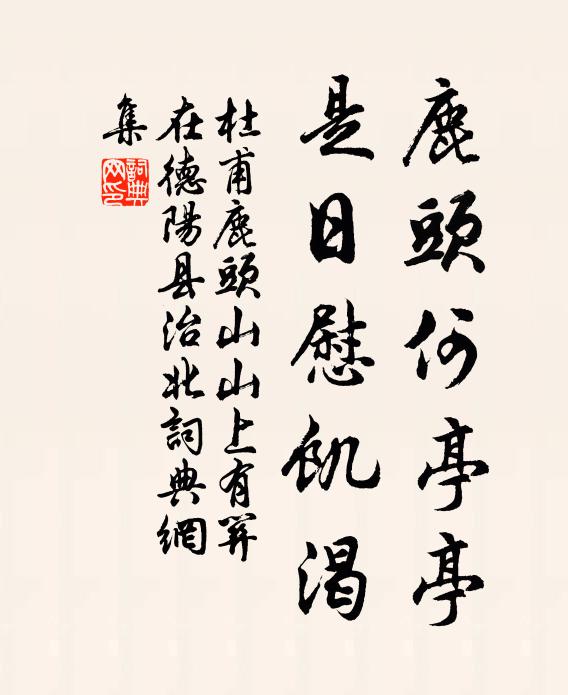 鹿頭何亭亭
是日慰飢渴
杜甫鹿頭山山上有關
在德陽县治北詞典網
集
詞典
网印